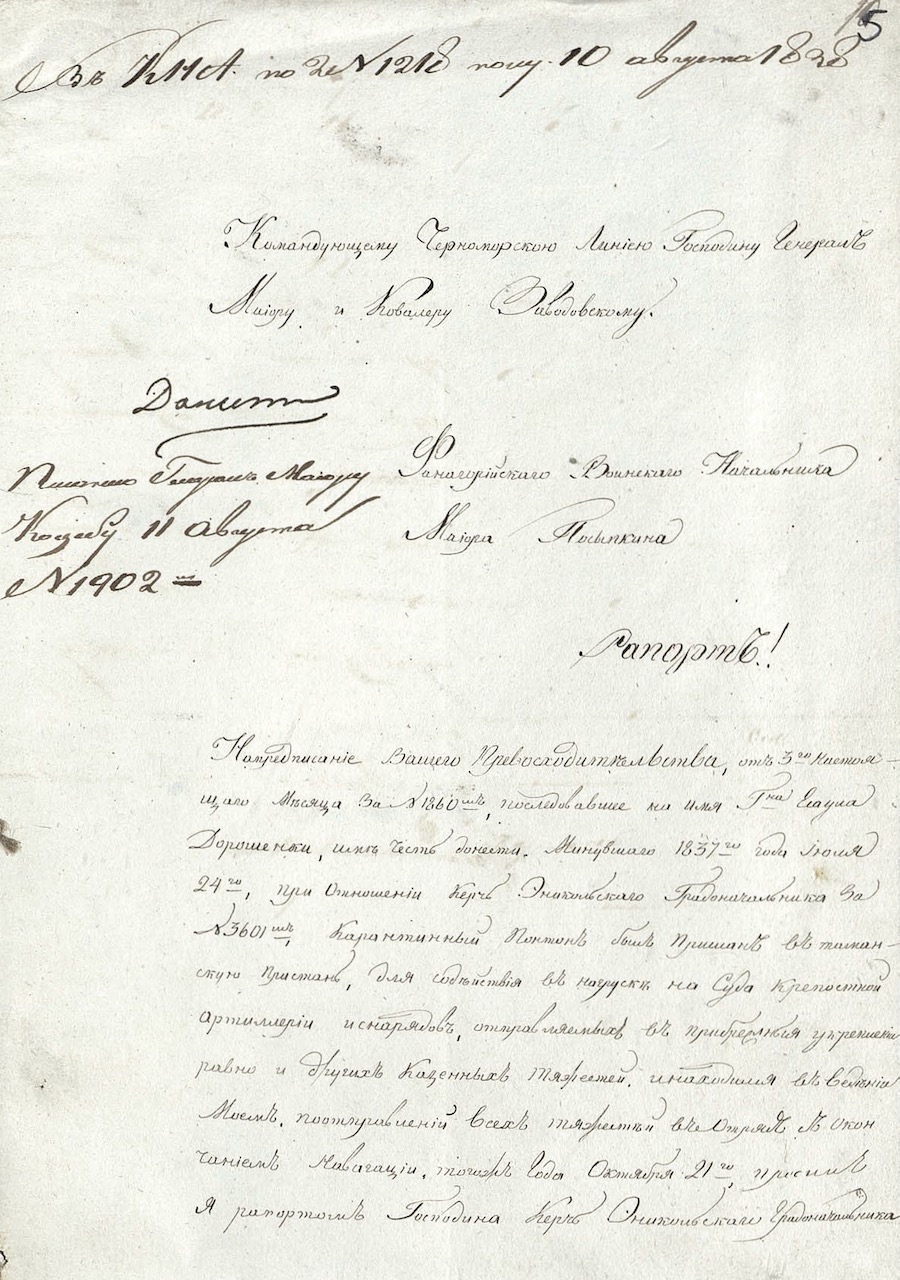 5
Въ К. М. А. по 2 № 1218 полу. 10 августа 1838
Командующему Черноморскою Линіею Господину Генералъ
Маіору и Ковалеру Заводовскому.
Донести
Генералъ Маіору
11 Августа
№ 1902
Фанагорійскаго Воинскаго Начальника
Маіора Посыпкина
Рапортъ!
Напредписаніе Вашего Превосходительства, отъ 3го настоя-
щаго Мѣсяца За № 1860мъ, последовавшее на имя Гна Есаула
Дорошенки, имѣю честь донести. Минувшаго 1837го года Іюля
24го, при Отношеніи Керчь Эникольскаго Градоначальника За
№ 3601мъ, Карантинный Понтонъ былъ Присланъ въ таман-
скую Пристань, для содѣйствія въ нагрускѣ на Суда крепостной
артиллеріи иснарядовъ, отправляемыхъ въ прибрежныя укрепленія
равно и другихъ Казенныхъ тяжестей, инаходился въ Веденіи
Моемъ, поотправленій всехъ тяжестей въ Отрядъ съ Окон
чаніемъ Навигаціи, тогожъ Года Октября 21го, просилъ
Я рапортомъ Господина Керчь Эникольскаго Градоначальника